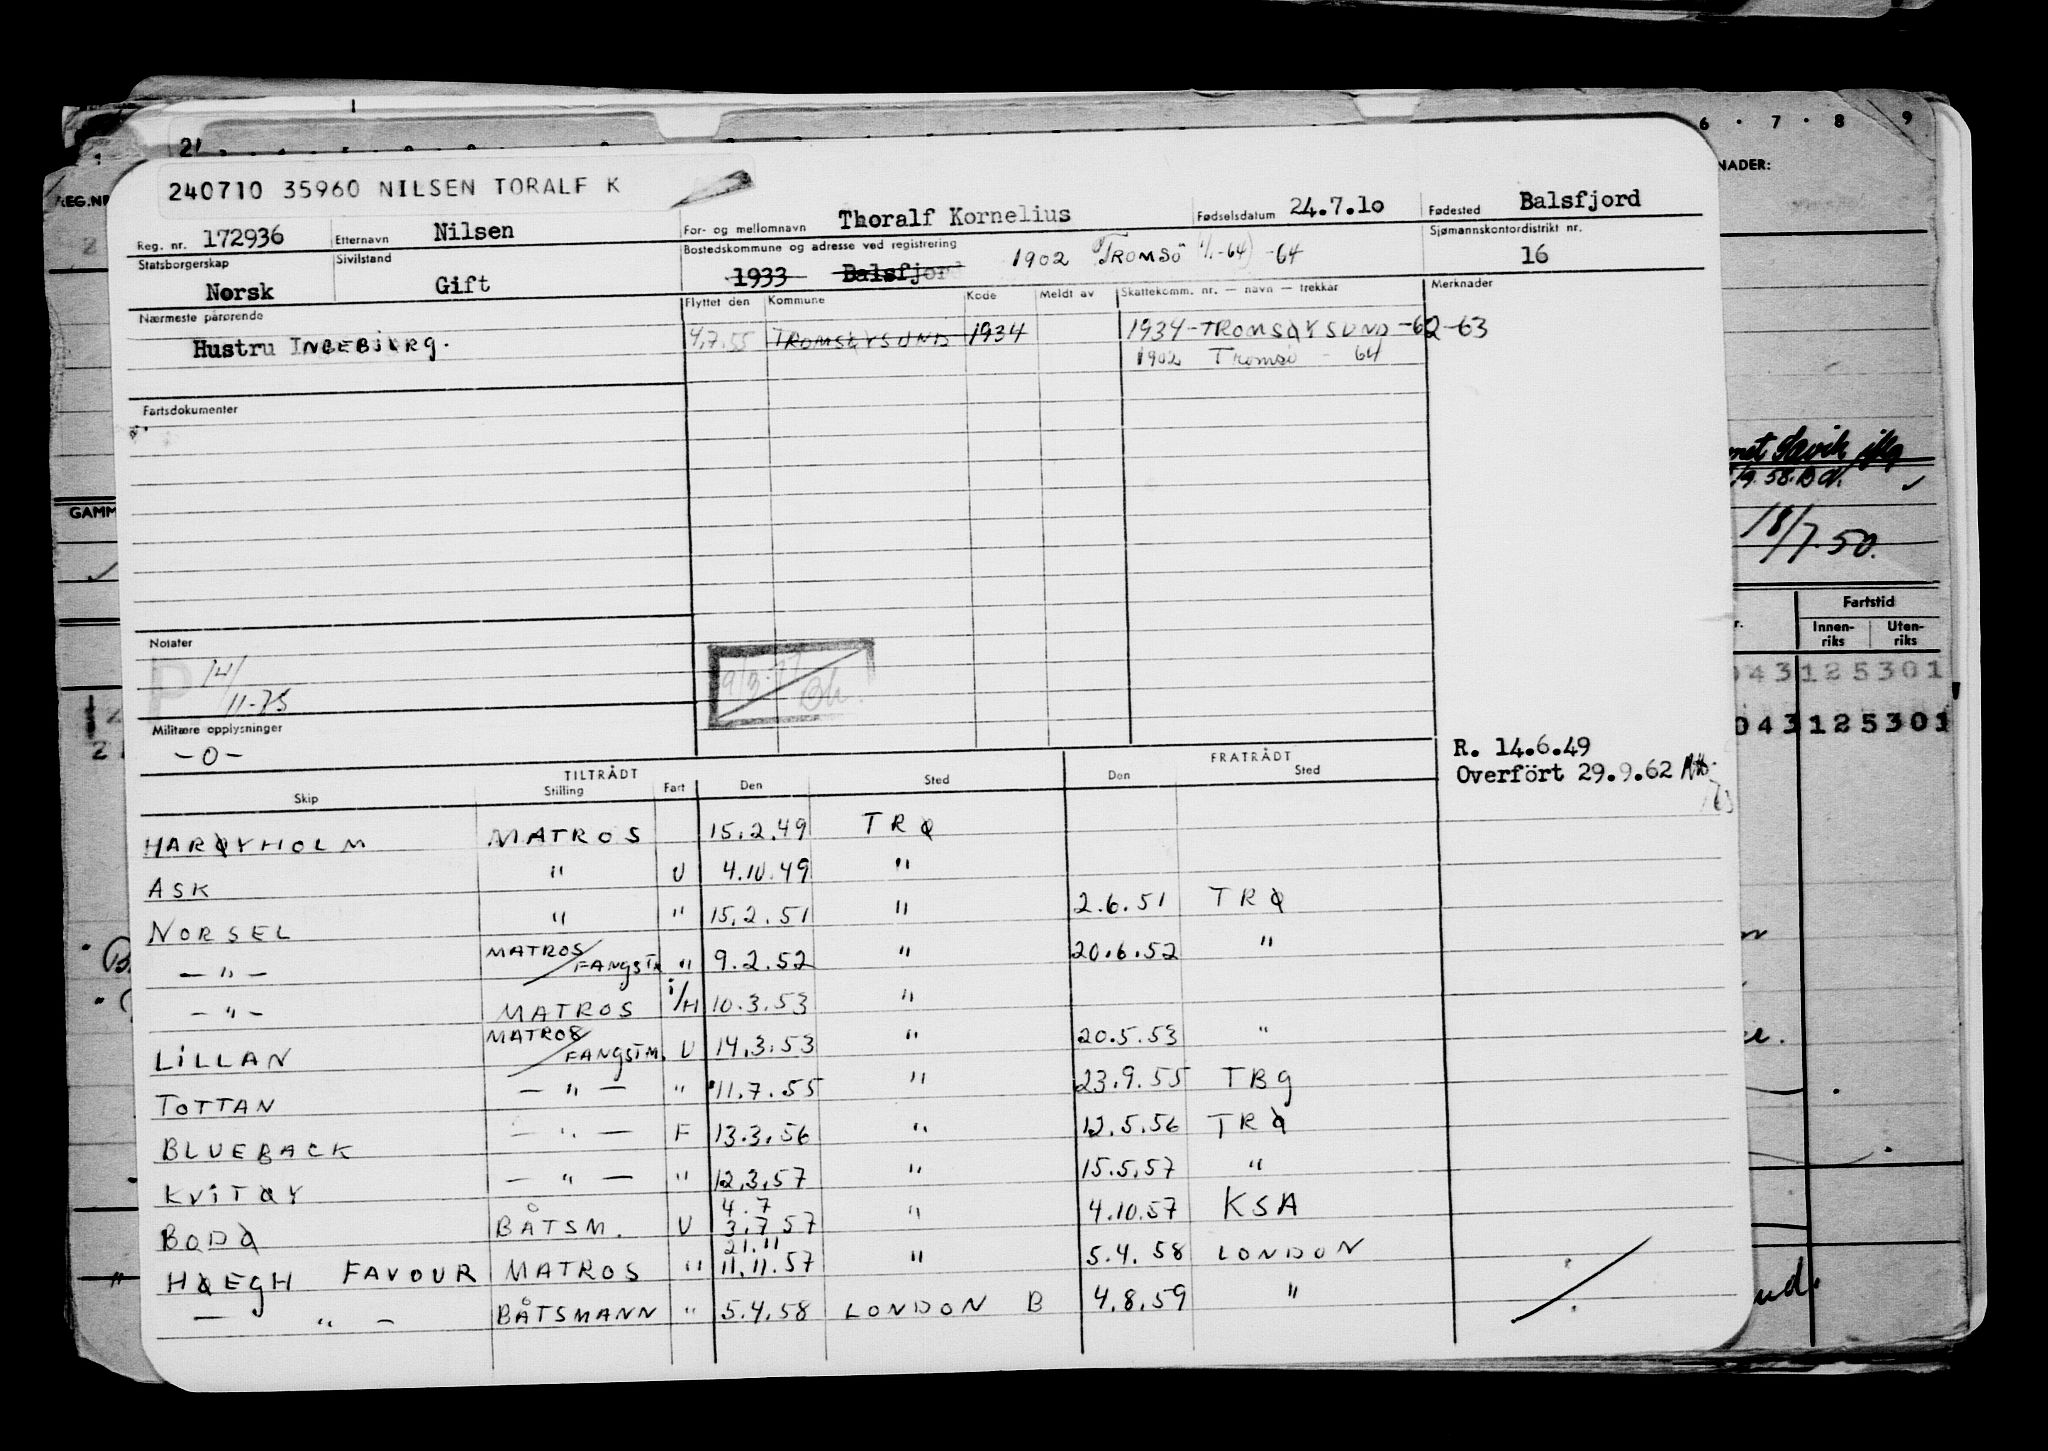 240710 35960 NILSEN TORALF K
Reg. nr. 172936 Etternavn Nilsen For- og mellomnavn Thoralf Kornelius Fødselsdatum 24.7.10 Fødested Balsfjord
Statsborgerskap Norsk Sivilstand Gift Bostedskommune og adresse ved registrering 1933 Balsfjord 1902 TROMSÖ -64 Sjømannskontordistrikt nr. 16
Nærmeste pårørende Flyttet den Kommune Kode Meldt av Skattekomm. nr. — navn — trekkår Merknader
Hustru INGEBJØRG. 4.7.55 TROMSØYSUND 1934 1934-TROMSØYSUND-62-63
1902 Tromsö - 64
Fartsdokumenter
Notater
P 14/
11-75
Militære opplysninger
-0-
R. 14.6.49
Overfört 29.9.62
TILTRÅDT FRATRÅDT
Skip Stilling Fart Den Sted Den Sted
HARØYHOLM MATROS 15.2.49 TRØ
ASK " U 4.10.49 "
NORSEL " " 15.2.51 " 2.6.51 TRØ
-"- MATROS/FANGSTM " 9.2.52 " 20.6.52 "
-"- MATROS i/H 10.3.53 "
LILLAN MATROS/FANGSTM. U 14.3.53 " 20.5.53 "
TOTTAN -"- " 11.7.55 " 23.9.55 TBG
BLUEBACK -"- F 13.3.56 " 12.5.56 TRØ
KVITØY -"- " 12.3.57 " 15.5.57 "
4.7
BODØ BÅTSM. U 3.7.57 " 4.10.57 KSA
21.11
HØEGH FAVOUR MATROS " 11.11.57 " 5.4.58 LONDON
-"- BÅTSMANN " 5.4.58 LONDON B 4.8.59 "
6 · 7 · 8 9
NADER:
REG.NR
GAMM
18/7.50.
Fartstid
Innen-riks Uten-riks
043125301
043125301